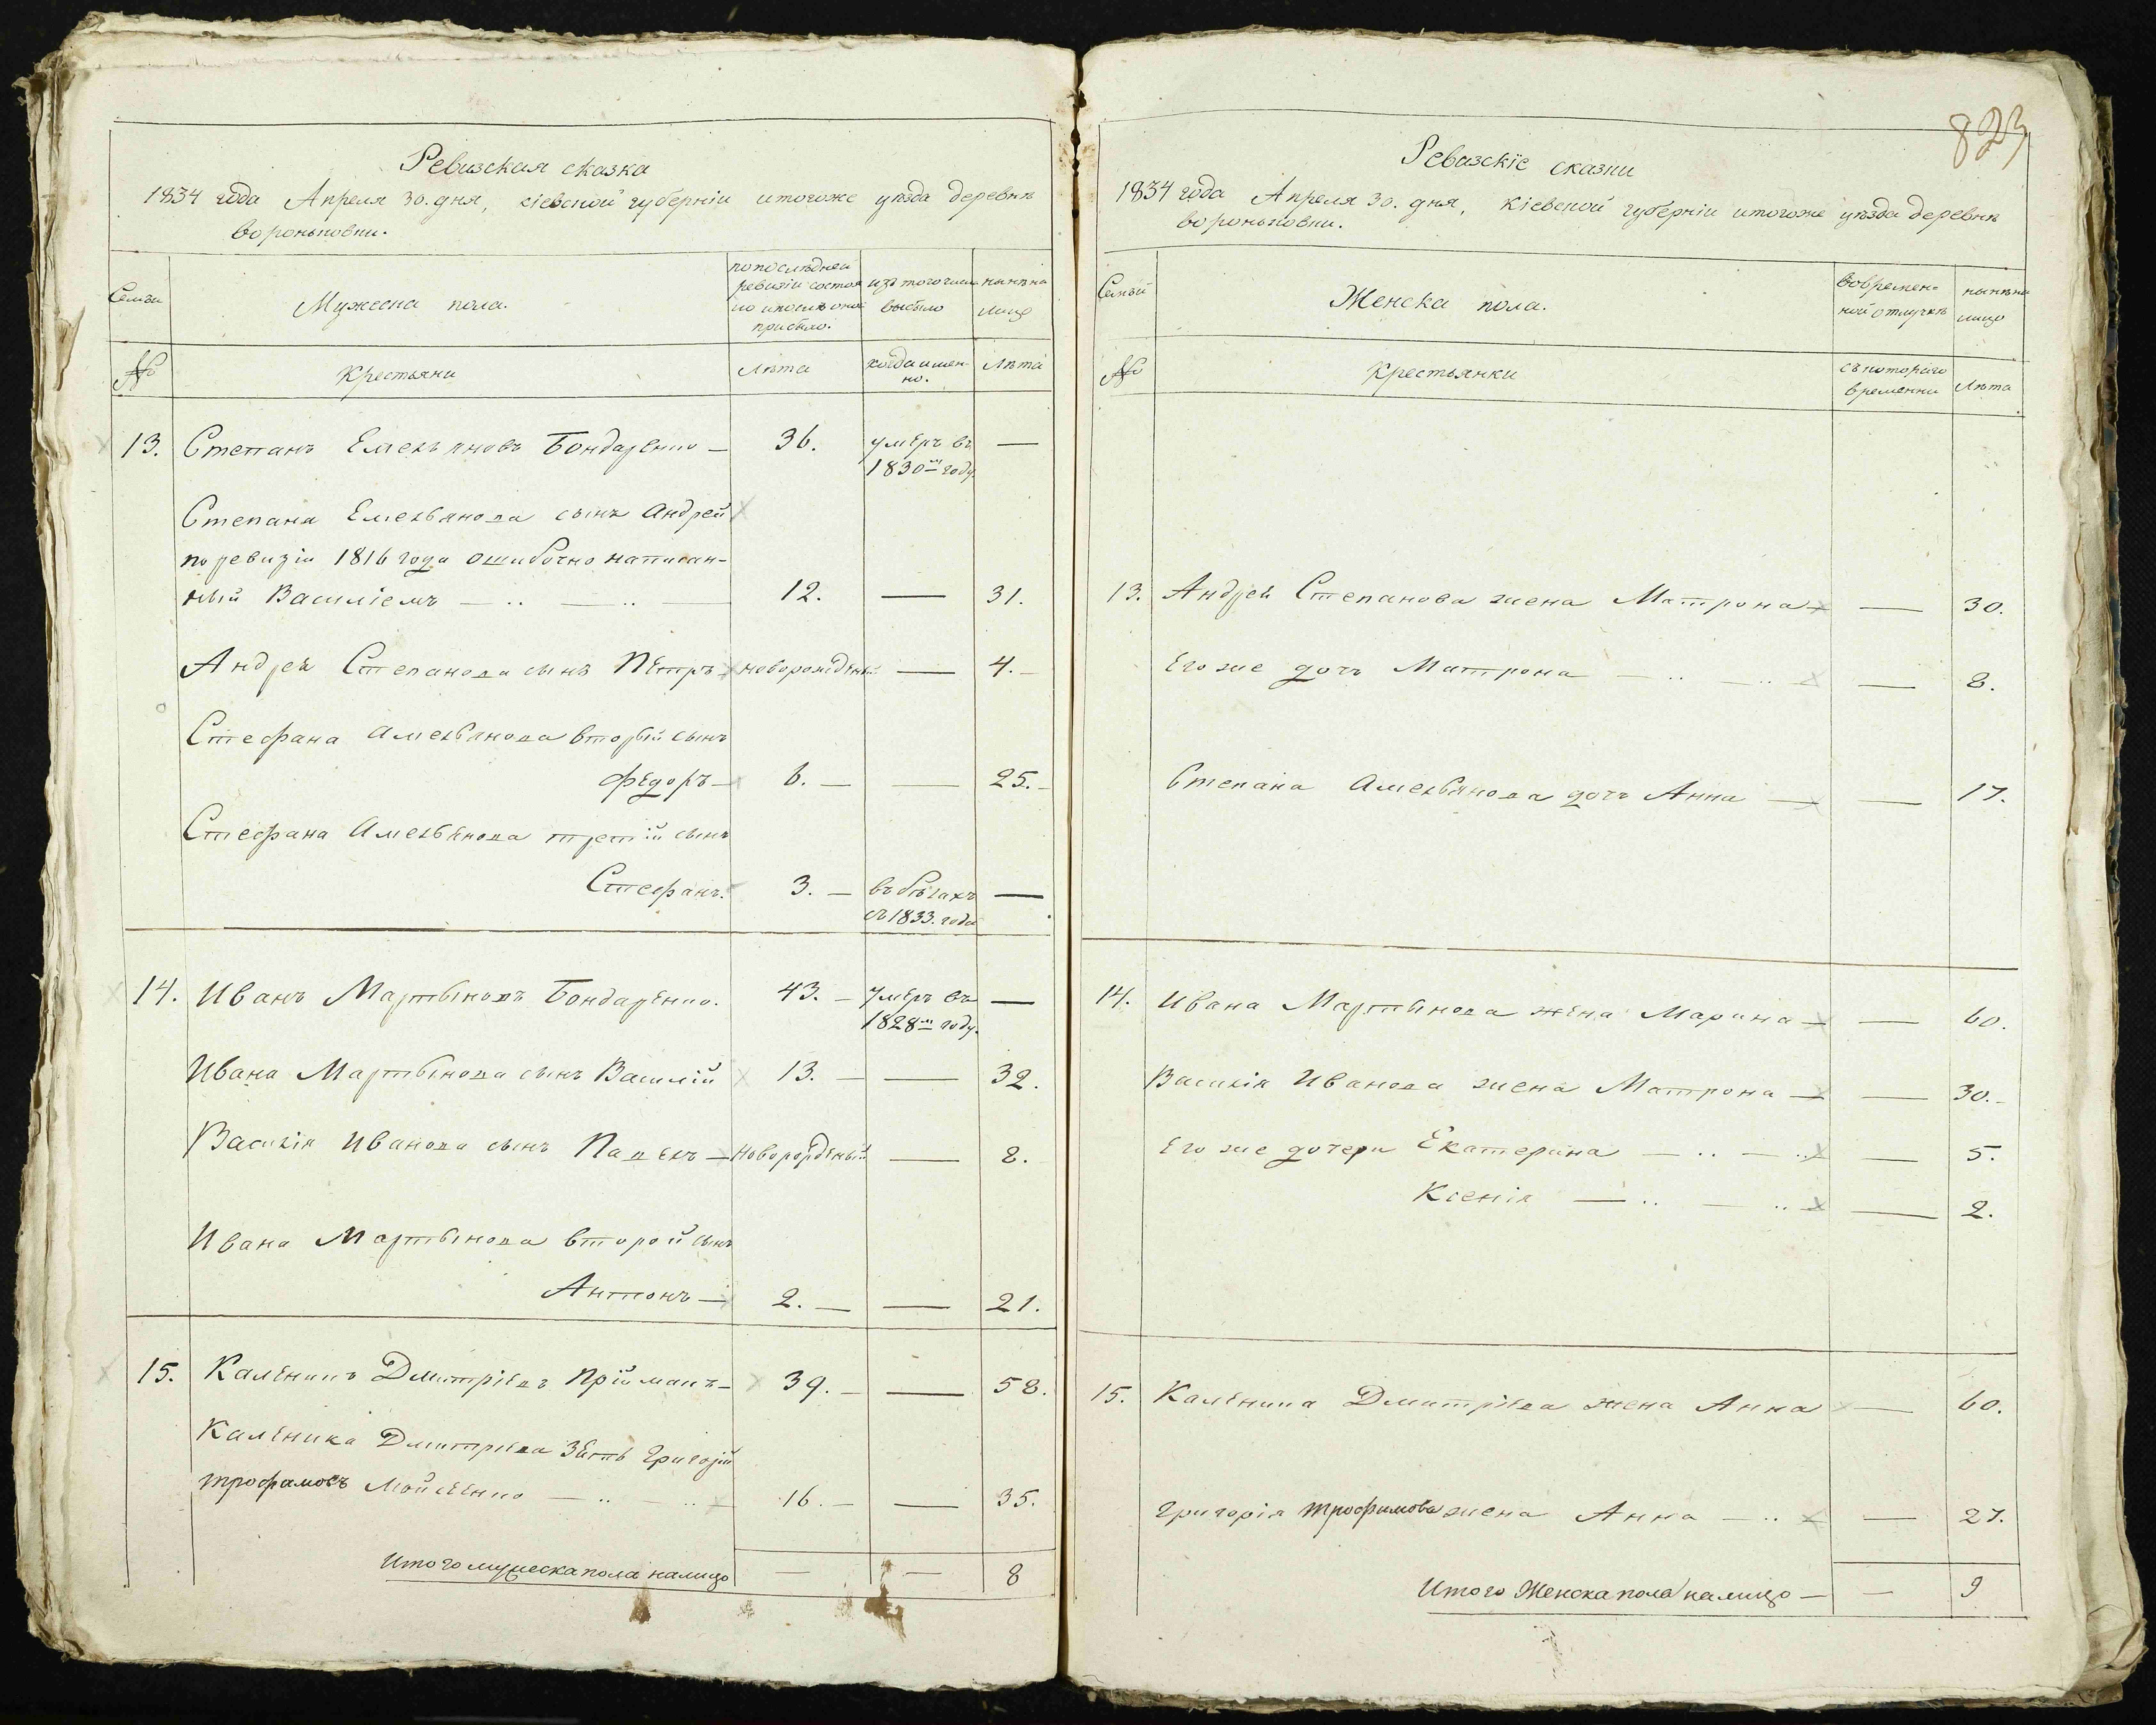 Ревизская сказка
1834 года Апреля 30. дня, кіевской губерніи итогоже уѣзда деревнѣ
вороньковки.
Семьи
Мужеска пола.
попослѣдней
ревизіи состоя
ло ипослѣ оной
прибыло.
изъ того числа
выбыло
нынѣ на
лицо
№
Крестьяни
Лѣта
когда имен-
но.
Лѣта
13. Степанъ Емельяновъ Бондаренко — 36. умеръ въ —
1830м году.
Степана Емельянова сынъ Андрей
по ревизіи 1816 года ошибочно написан-
ный Василіемъ — .. — .. — 12. — 31.
Андрея Степанова сынъ Петръ новорожденый — 4.
Стефана Амельянова вторый сынъ
Федоръ — 6. — — 25.
Стефана Амельянова третій сынъ
Стефанъ. 3. — въ бѣгахъ —
съ 1833. года
14. Иванъ Мартыновъ Бондаренко. 43. — умеръ въ —
1828м году.
Ивана Мартынова сынъ Василій 13. — — 32.
Василія Иванова сынъ Павелъ — новорожденый — 8.
Ивана Мартынова второй сынъ
Антонъ — 2. — — 21.
15. Каленикъ Дмитріевъ Прійманъ — 39. — — 58.
Каленика Дмитріева зять Григорій
Трофимовъ Мойсеенко — .. — .. — 16. — — 35.
Итого мужеска пола налицо — — 8
823
Ревизскіе сказки
1834 года Апреля 30. дня, кіевской губерніи итогоже уѣзда деревнѣ
вороньковки.
Семьи
Женска пола.
вовремен-
ной отлучкѣ
нынѣ на
лицо
№
Крестьянки
съ котораго
времени
Лѣта
13. Андрея Степанова жена Матрона — — 30.
Его же дочь Матрона — .. — .. — — 8.
Степана Амельянова дочь Анна — — 17.
14. Ивана Мартынова жена Марина — — 60.
Василія Иванова жена Матрона — — 30.
Его же дочери Екатерина — .. — .. — 5.
Ксенія — .. — .. — — 2.
15. Каленика Дмитріева жена Анна — 60.
Григорія Трофимова жена Анна — .. — — 27.
Итого Женска пола налицо — — 9